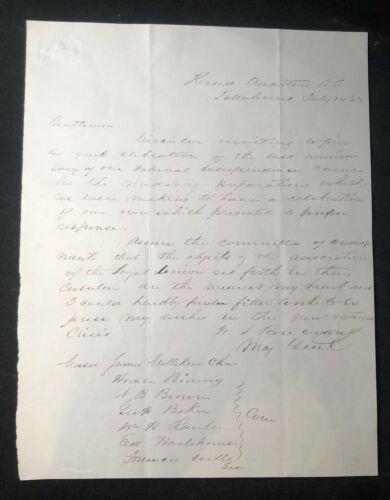 Head Quarters D.C.
Tullahoma July 14/63
Gentlemen
Circular inviting to join
in your celebration of the last anniver
sary of our National Independence came
in the midst of preparations which
we were making to have a celebration
of our own which prevented a proper
response.
Assure the committee of arrange
ments that the objects of the association
of the Loyal Union set forth in their
Circular are the nearest my heart and
I could hardly find fitter words to ex
press my wishes in the great national
Crisis
W. S. Rosecrans
Maj Genl
Messrs James Milliken Chn
Horace Binney
N B Browne
Geo H Boker
Wm H Rawle
Ed Hartshorne
Com